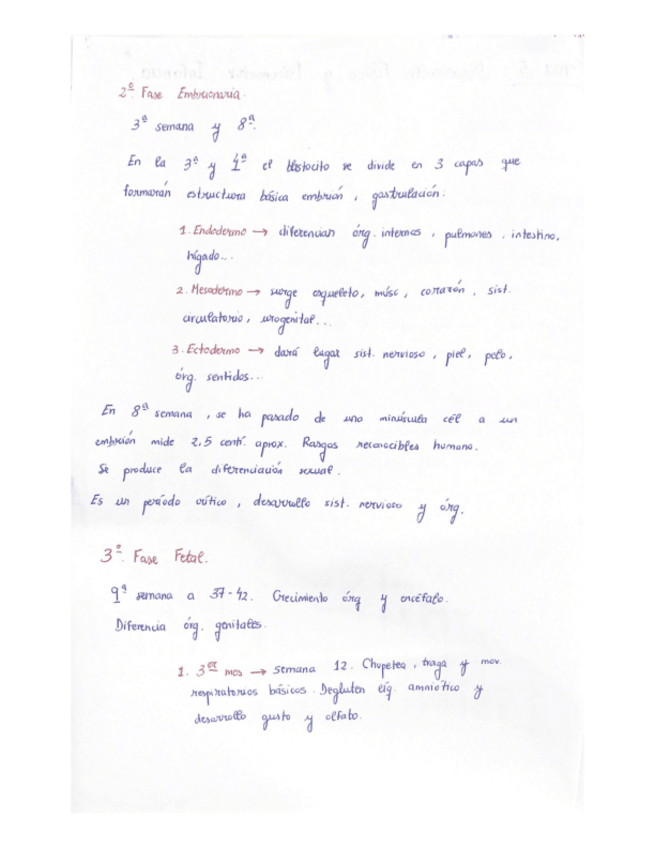 2º. Fase Embrionaria.
3ª semana y 8ª.
En la 3ª y 4ª el blastocito se divide en 3 capas que
formarán estructura básica embrión, gastrulación:
1. Endodermo → diferencian órg. internos, pulmones, intestino,
hígado...
2. Mesodermo → surge esqueleto, músc, corazón, sist.
circulatorio, urogenital...
3. Ectodermo → dará lugar sist. nervioso, piel, pelo,
órg. sentidos...
En 8ª semana, se ha pasado de una minúscula cél a un
embrión mide 2,5 centí. aprox. Rasgos reconocibles humano.
Se produce la diferenciación sexual.
Es un período crítico, desarrollo sist. nervioso y órg.
3º. Fase Fetal.
9ª semana a 37-42. Crecimiento órg y encéfalo.
Diferencia órg. genitales.
1. 3er mes → semana 12. Chupetea, traga y mov.
respiratorios básicos. Degluten líq. amniótico y
desarrollo gusto y olfato.